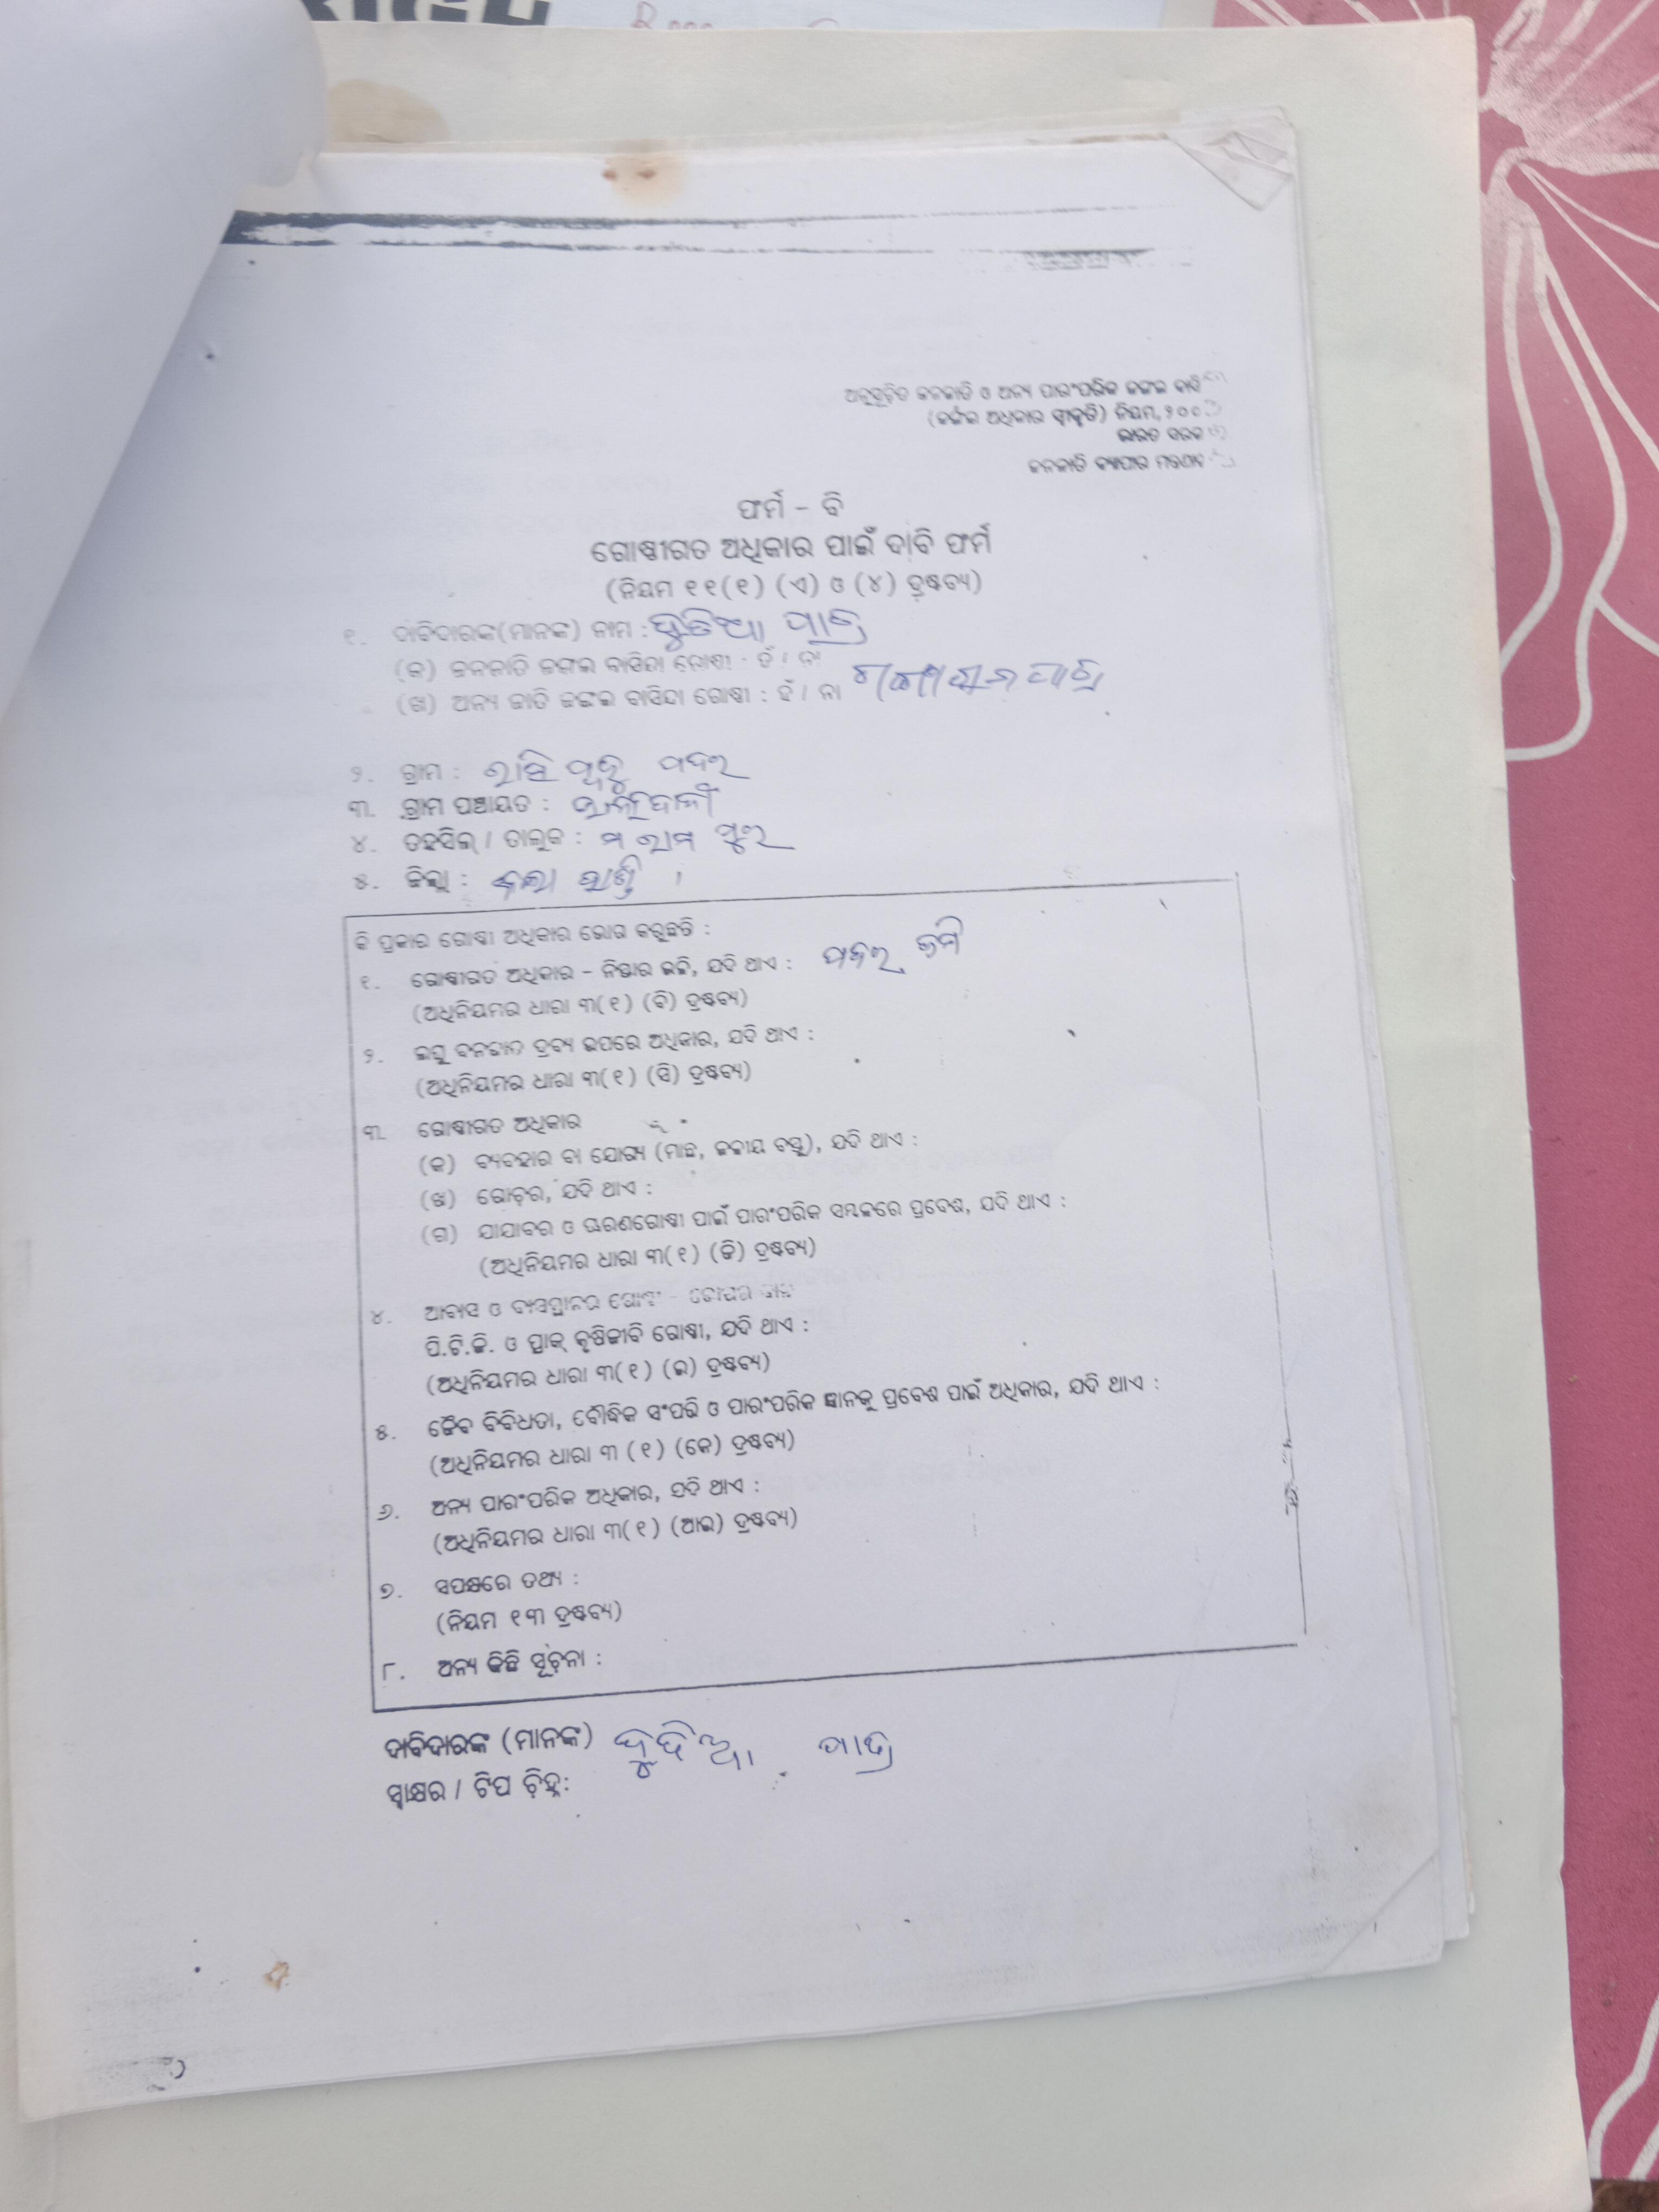 ଅନୁସୂଚିତ ଜନଜାତି ଓ ଅନ୍ୟ ପାରଂପରିକ ଜଙ୍ଗଲ ବାସି
(ଜଙ୍ଗଲ ଅଧିକାର ସ୍ୱୀକୃତି) ନିୟମ, ୨୦୦
ଭାରତ ସରକ
ଜନଜାତି ବ୍ୟାପାର
ଫର୍ମ - ବି
ଗୋଷ୍ଠୀଗତ ଅଧିକାର ପାଇଁ ଦାବି ଫର୍ମ
(ନିୟମ ୧୧(୧) (ଏ) ଓ (୪) ଦ୍ରଷ୍ଟବ୍ୟ)
୧. ଦାବିଦାରଙ୍କ(ମାନଙ୍କ) ନାମ : ପାତ୍ର
(କ) ଜନଜାତି ଜଙ୍ଗଲ ବାସିନ୍ଦା ଗୋଷ୍ଠୀ : ହଁ / ନା
(ଖ) ଅନ୍ୟ ଜାତି ଜଙ୍ଗଲ ବାସିନ୍ଦା ଗୋଷ୍ଠୀ : ହଁ / ନା ପାତ୍ର
୨. ଗ୍ରାମ : ପଦର
୩. ଗ୍ରାମ ପଞ୍ଚାୟତ :
୪. ତହସିଲ୍ / ତାଲୁକ : ମ ରାମ ପୁର
୫. ଜିଲ୍ଲା : କଳା ହାଣ୍ଡି
କି ପ୍ରକାର ଗୋଷ୍ଠୀ ଅଧିକାର ଭୋଗ କରୁଛନ୍ତି :
୧. ଗୋଷ୍ଠୀଗତ ଅଧିକାର - ନିସ୍ତାର ଭଳି, ଯଦି ଥାଏ : ପଦର ଜମି
(ଅଧିନିୟମର ଧାରା ୩(୧) (ବି) ଦ୍ରଷ୍ଟବ୍ୟ)
୨. ଲଘୁ ବନଜାତ ଦ୍ରବ୍ୟ ଉପରେ ଅଧିକାର, ଯଦି ଥାଏ :
(ଅଧିନିୟମର ଧାରା ୩(୧) (ସି) ଦ୍ରଷ୍ଟବ୍ୟ)
୩. ଗୋଷ୍ଠୀଗତ ଅଧିକାର
(କ) ବ୍ୟବହାର ବା ଯୋଗ୍ୟ (ମାଛ, ଜଳୀୟ ବସ୍ତୁ), ଯଦି ଥାଏ :
(ଖ) ଗୋଚର, ଯଦି ଥାଏ :
(ଗ) ଯାଯାବର ଓ ଚାରଣଗୋଷ୍ଠୀ ପାଇଁ ପାରଂପରିକ ସମ୍ବଳରେ ପ୍ରବେଶ, ଯଦି ଥାଏ :
(ଅଧିନିୟମର ଧାରା ୩(୧) (ଜି) ଦ୍ରଷ୍ଟବ୍ୟ)
୪. ଆବାସ ଓ ବାସସ୍ଥାନର ଗୋଷ୍ଠୀ -
ପି.ଟି.ଜି. ଓ ପ୍ରାକ୍ କୃଷିଜୀବି ଗୋଷ୍ଠୀ, ଯଦି ଥାଏ :
(ଅଧିନିୟମର ଧାରା ୩(୧) (ଇ) ଦ୍ରଷ୍ଟବ୍ୟ)
୫. ଜୈବ ବିବିଧତା, ବୌଦ୍ଧିକ ସଂପତ୍ତି ଓ ପାରଂପରିକ ଜ୍ଞାନକୁ ପ୍ରବେଶ ପାଇଁ ଅଧିକାର, ଯଦି ଥାଏ :
(ଅଧିନିୟମର ଧାରା ୩ (୧) (କେ) ଦ୍ରଷ୍ଟବ୍ୟ)
୬. ଅନ୍ୟ ପାରଂପରିକ ଅଧିକାର, ଯଦି ଥାଏ :
(ଅଧିନିୟମର ଧାରା ୩(୧) (ଆଇ) ଦ୍ରଷ୍ଟବ୍ୟ)
୭. ସପକ୍ଷରେ ତଥ୍ୟ :
(ନିୟମ ୧୩ ଦ୍ରଷ୍ଟବ୍ୟ)
୮. ଅନ୍ୟ କିଛି ସୂଚନା :
ଦାବିଦାରଙ୍କ (ମାନଙ୍କ) ପାତ୍ର
ସ୍ୱାକ୍ଷର / ଟିପ ଚିହ୍ନ: